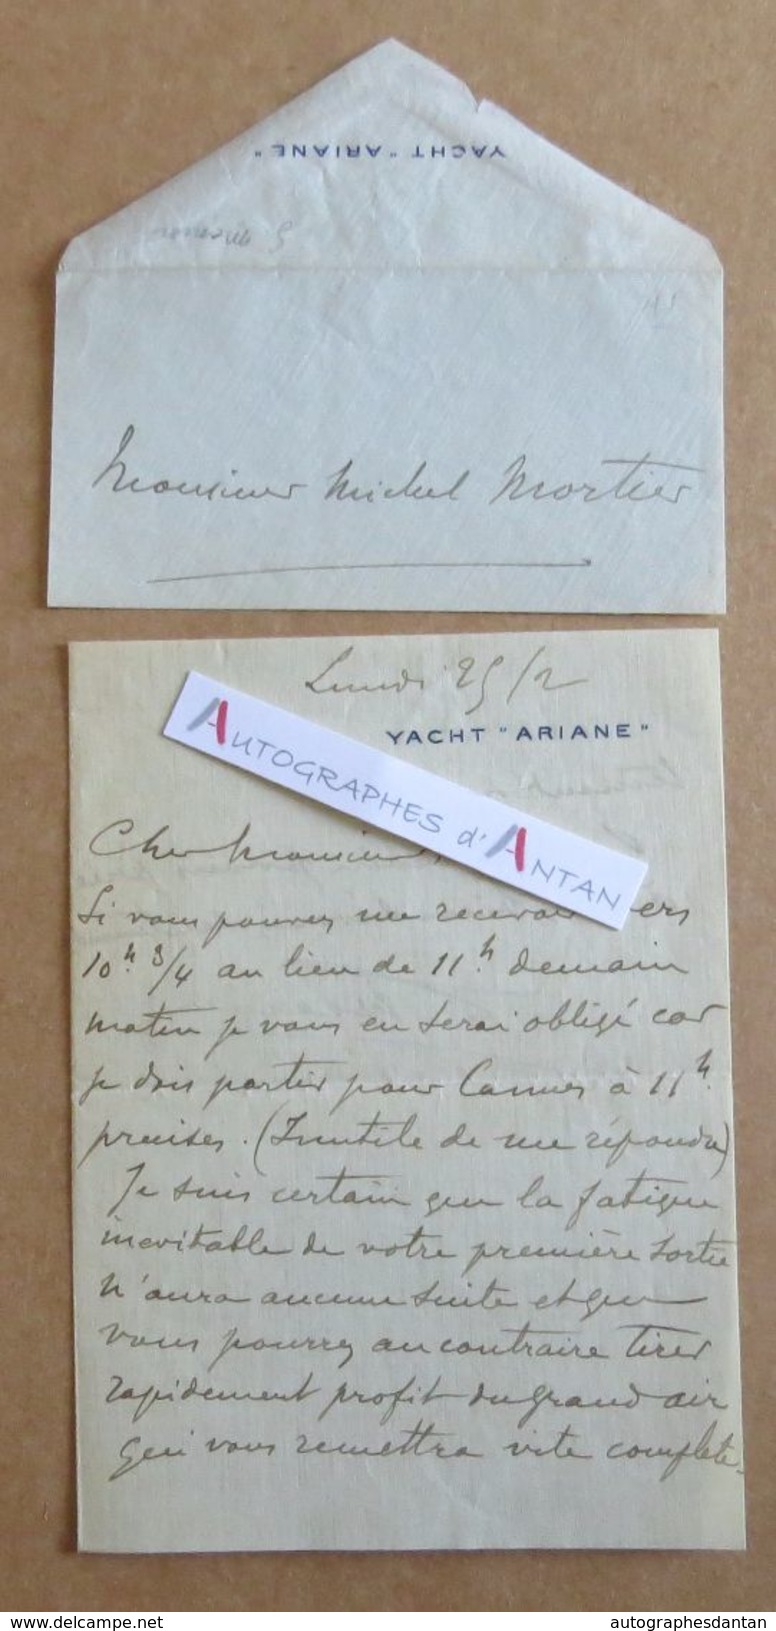 YACHT "ARIANE"
Monsieur Michel Mortier
Lundi 25/2
YACHT "ARIANE"
AUTOGRAPHES d'ANTAN
Cher Monsieur,
Si vous pouvez me recevoir vers
10h. 3/4 au lieu de 11h. demain
matin je vous en serai obligé car
je dois partir pour Cannes à 11h.
precises. (Inutile de me répondre)
Je suis certain que la fatigue
inevitable de votre première sortie
n'aura aucune suite et que
vous pourrez au contraire tirer
rapidement profit du grand air
qui vous remettra vite complete-
delcampe.net
autographesdantan